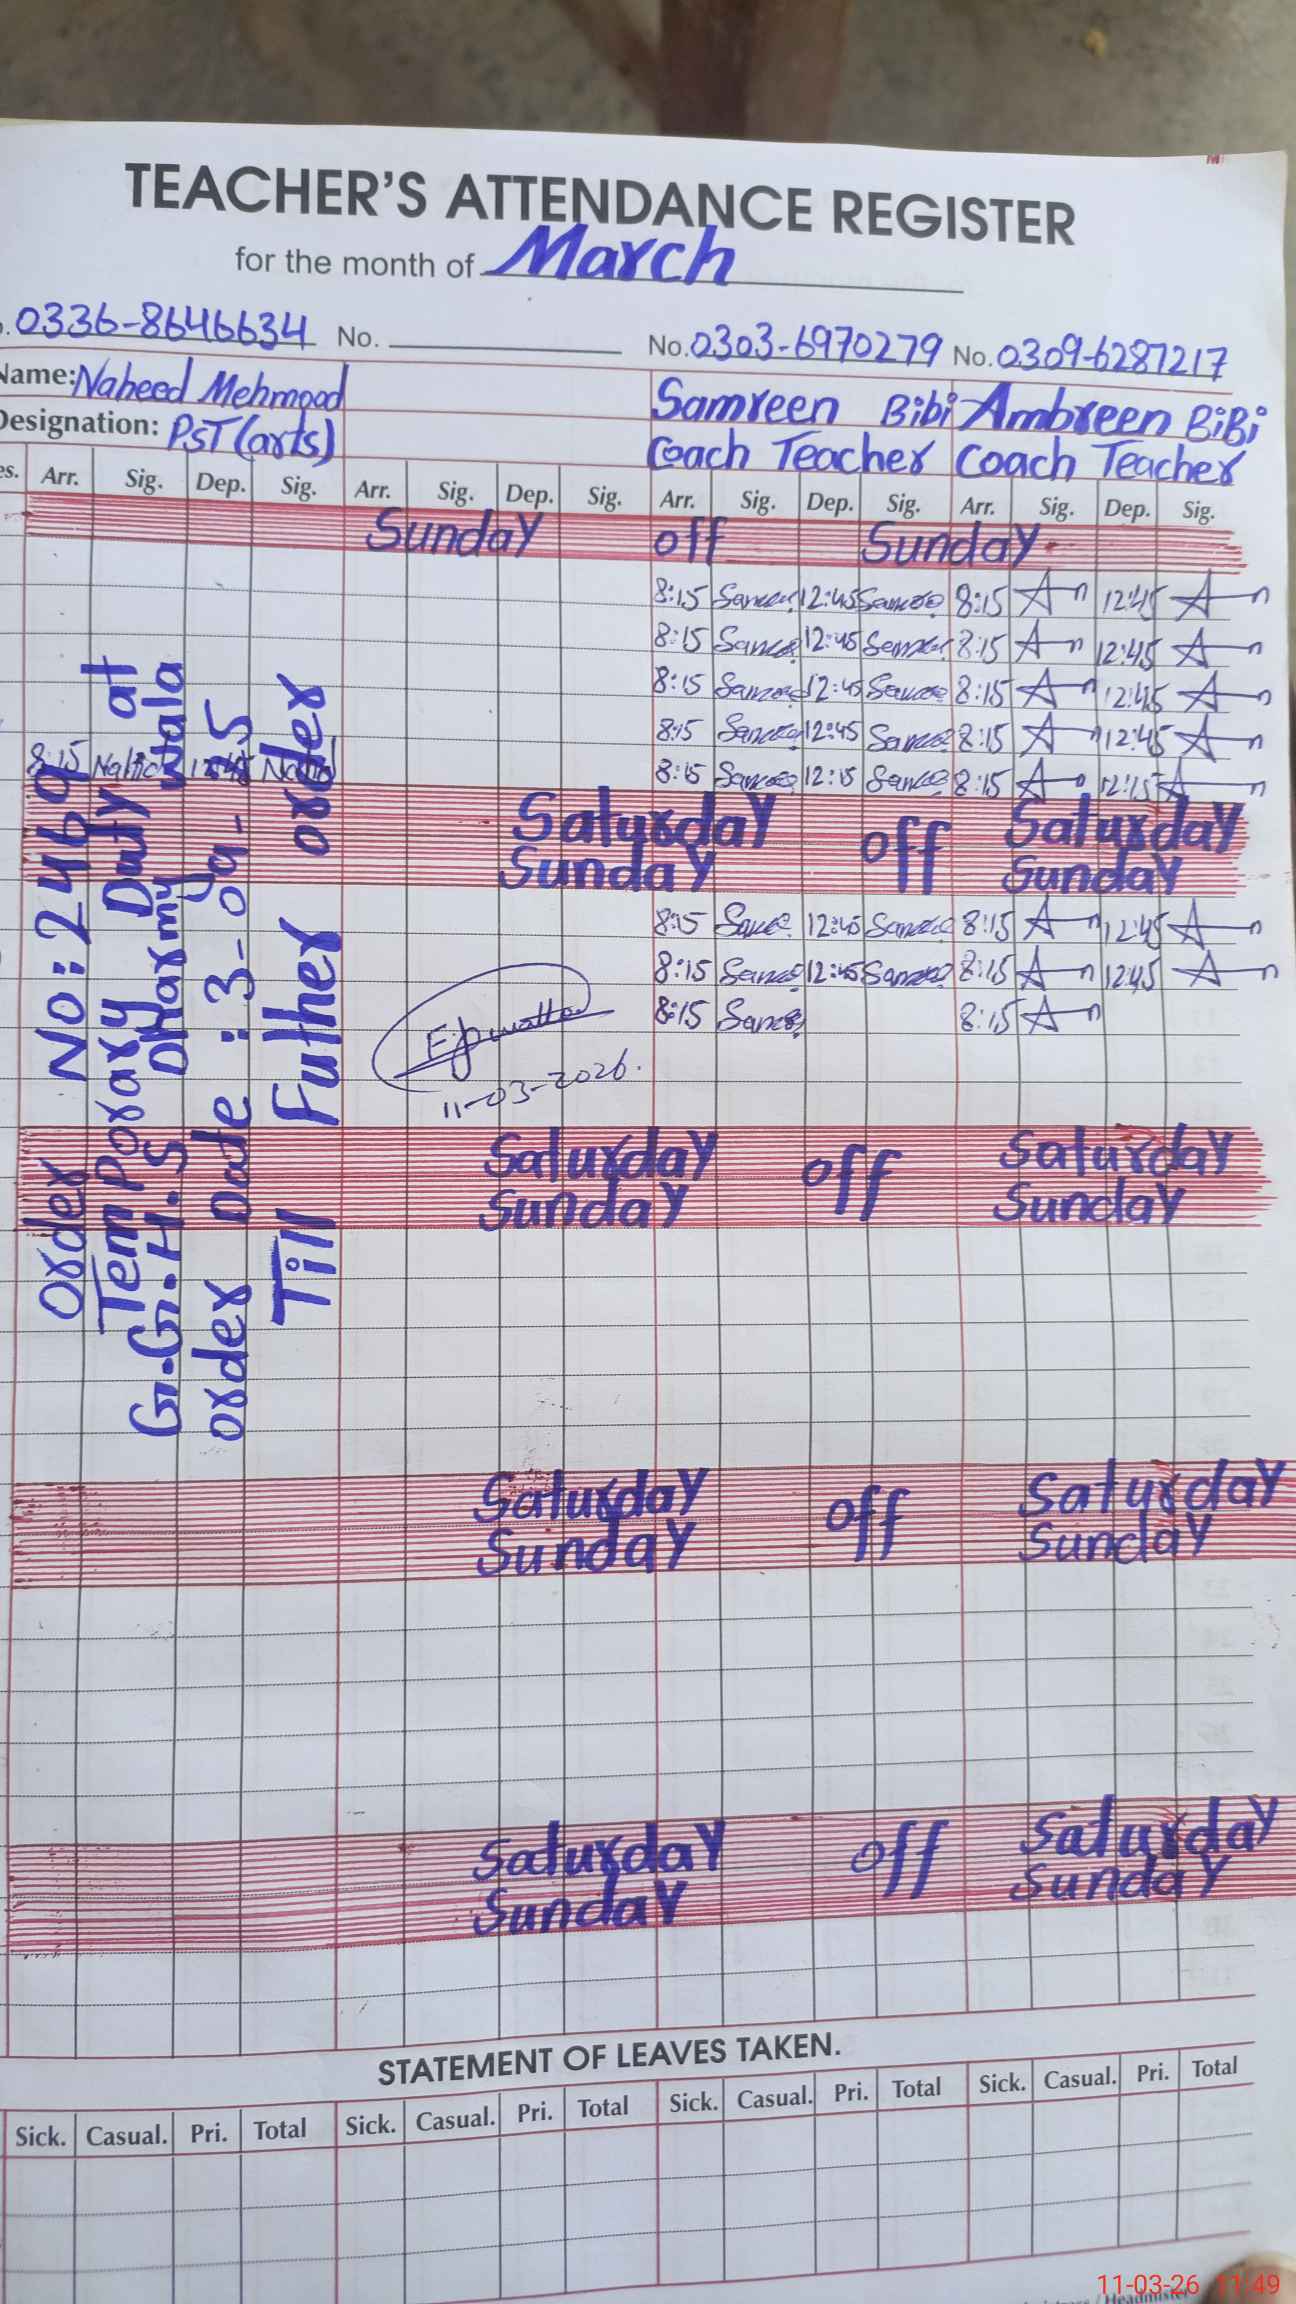 TEACHER'S ATTENDANCE REGISTER
for the month of March
0336-8646634 No. No.0303-6970279 No.0309-6287217
Name: Naheed Mehmood Samreen Bibi Ambreen BiBi
Designation: PST (arts) Coach Teacher Coach Teacher
es. Arr. Sig. Dep. Sig. Arr. Sig. Dep. Sig. Arr. Sig. Dep. Sig. Arr. Sig. Dep. Sig.
Sunday off Sunday
8:15 12:45 8:15 12:45
8:15 12:45 8:15 12:45
8:15 12:45 8:15 12:45
8:15 12:45 8:15 12:45
8:15 12:45 8:15 12:15 8:15 12:15
Saturday off Saturday
Sunday Sunday
8:15 12:45 8:15 12:45
8:15 12:45 8:15 12:45
8:15 8:15
11-03-2026.
order No: 2469
Temporary Duty at
G.G.H.S Wala
order Date : 3-09-25
Till Futher order
Saturday off Saturday
Sunday Sunday
Saturday off Saturday
Sunday Sunday
Saturday off Saturday
Sunday Sunday
STATEMENT OF LEAVES TAKEN.
Sick. Casual. Pri. Total Sick. Casual. Pri. Total Sick. Casual. Pri. Total Sick. Casual. Pri. Total
11-03-26 11:49